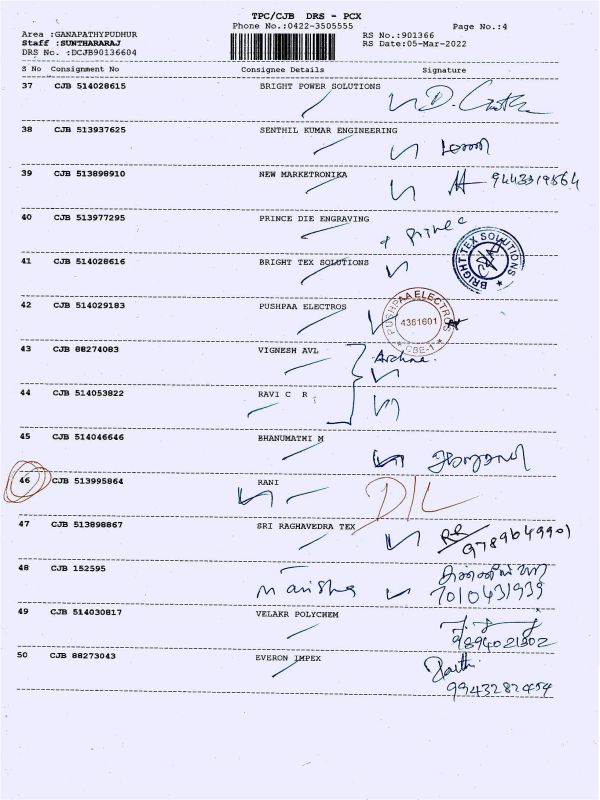 TPC/CJB DRS - PCX
Phone No.:0422-3505555
Page No.:4
Area :GANAPATHYPUDHUR
RS No.:901366
Staff :SUNTHARARAJ
RS Date:05-Mar-2022
DRS No. :DCJB90136604
S No Consignment No Consignee Details Signature
37 CJB 514028615 BRIGHT POWER SOLUTIONS
38 CJB 513937625 SENTHIL KUMAR ENGINEERING
39 CJB 513898910 NEW MARKETRONIKA 9443319564
40 CJB 513977295 PRINCE DIE ENGRAVING
Prince
41 CJB 514028616 BRIGHT TEX SOLUTIONS
BRIGHT TEX SOLUTIONS
42 CJB 514029183 PUSHPAA ELECTROS
PUSHPAA ELECTROS
4361601
CBE-1
43 CJB 88274083 VIGNESH AVL
44 CJB 514053822 RAVI C R
45 CJB 514046646 BHANUMATHI M
46 CJB 513995864 RANI
D/L
47 CJB 513898867 SRI RAGHAVEDRA TEX
9789649901
48 CJB 152595
Manisha
7010431939
49 CJB 514030817 VELAKR POLYCHEM
9894021302
50 CJB 88273043 EVERON IMPEX
9943282454